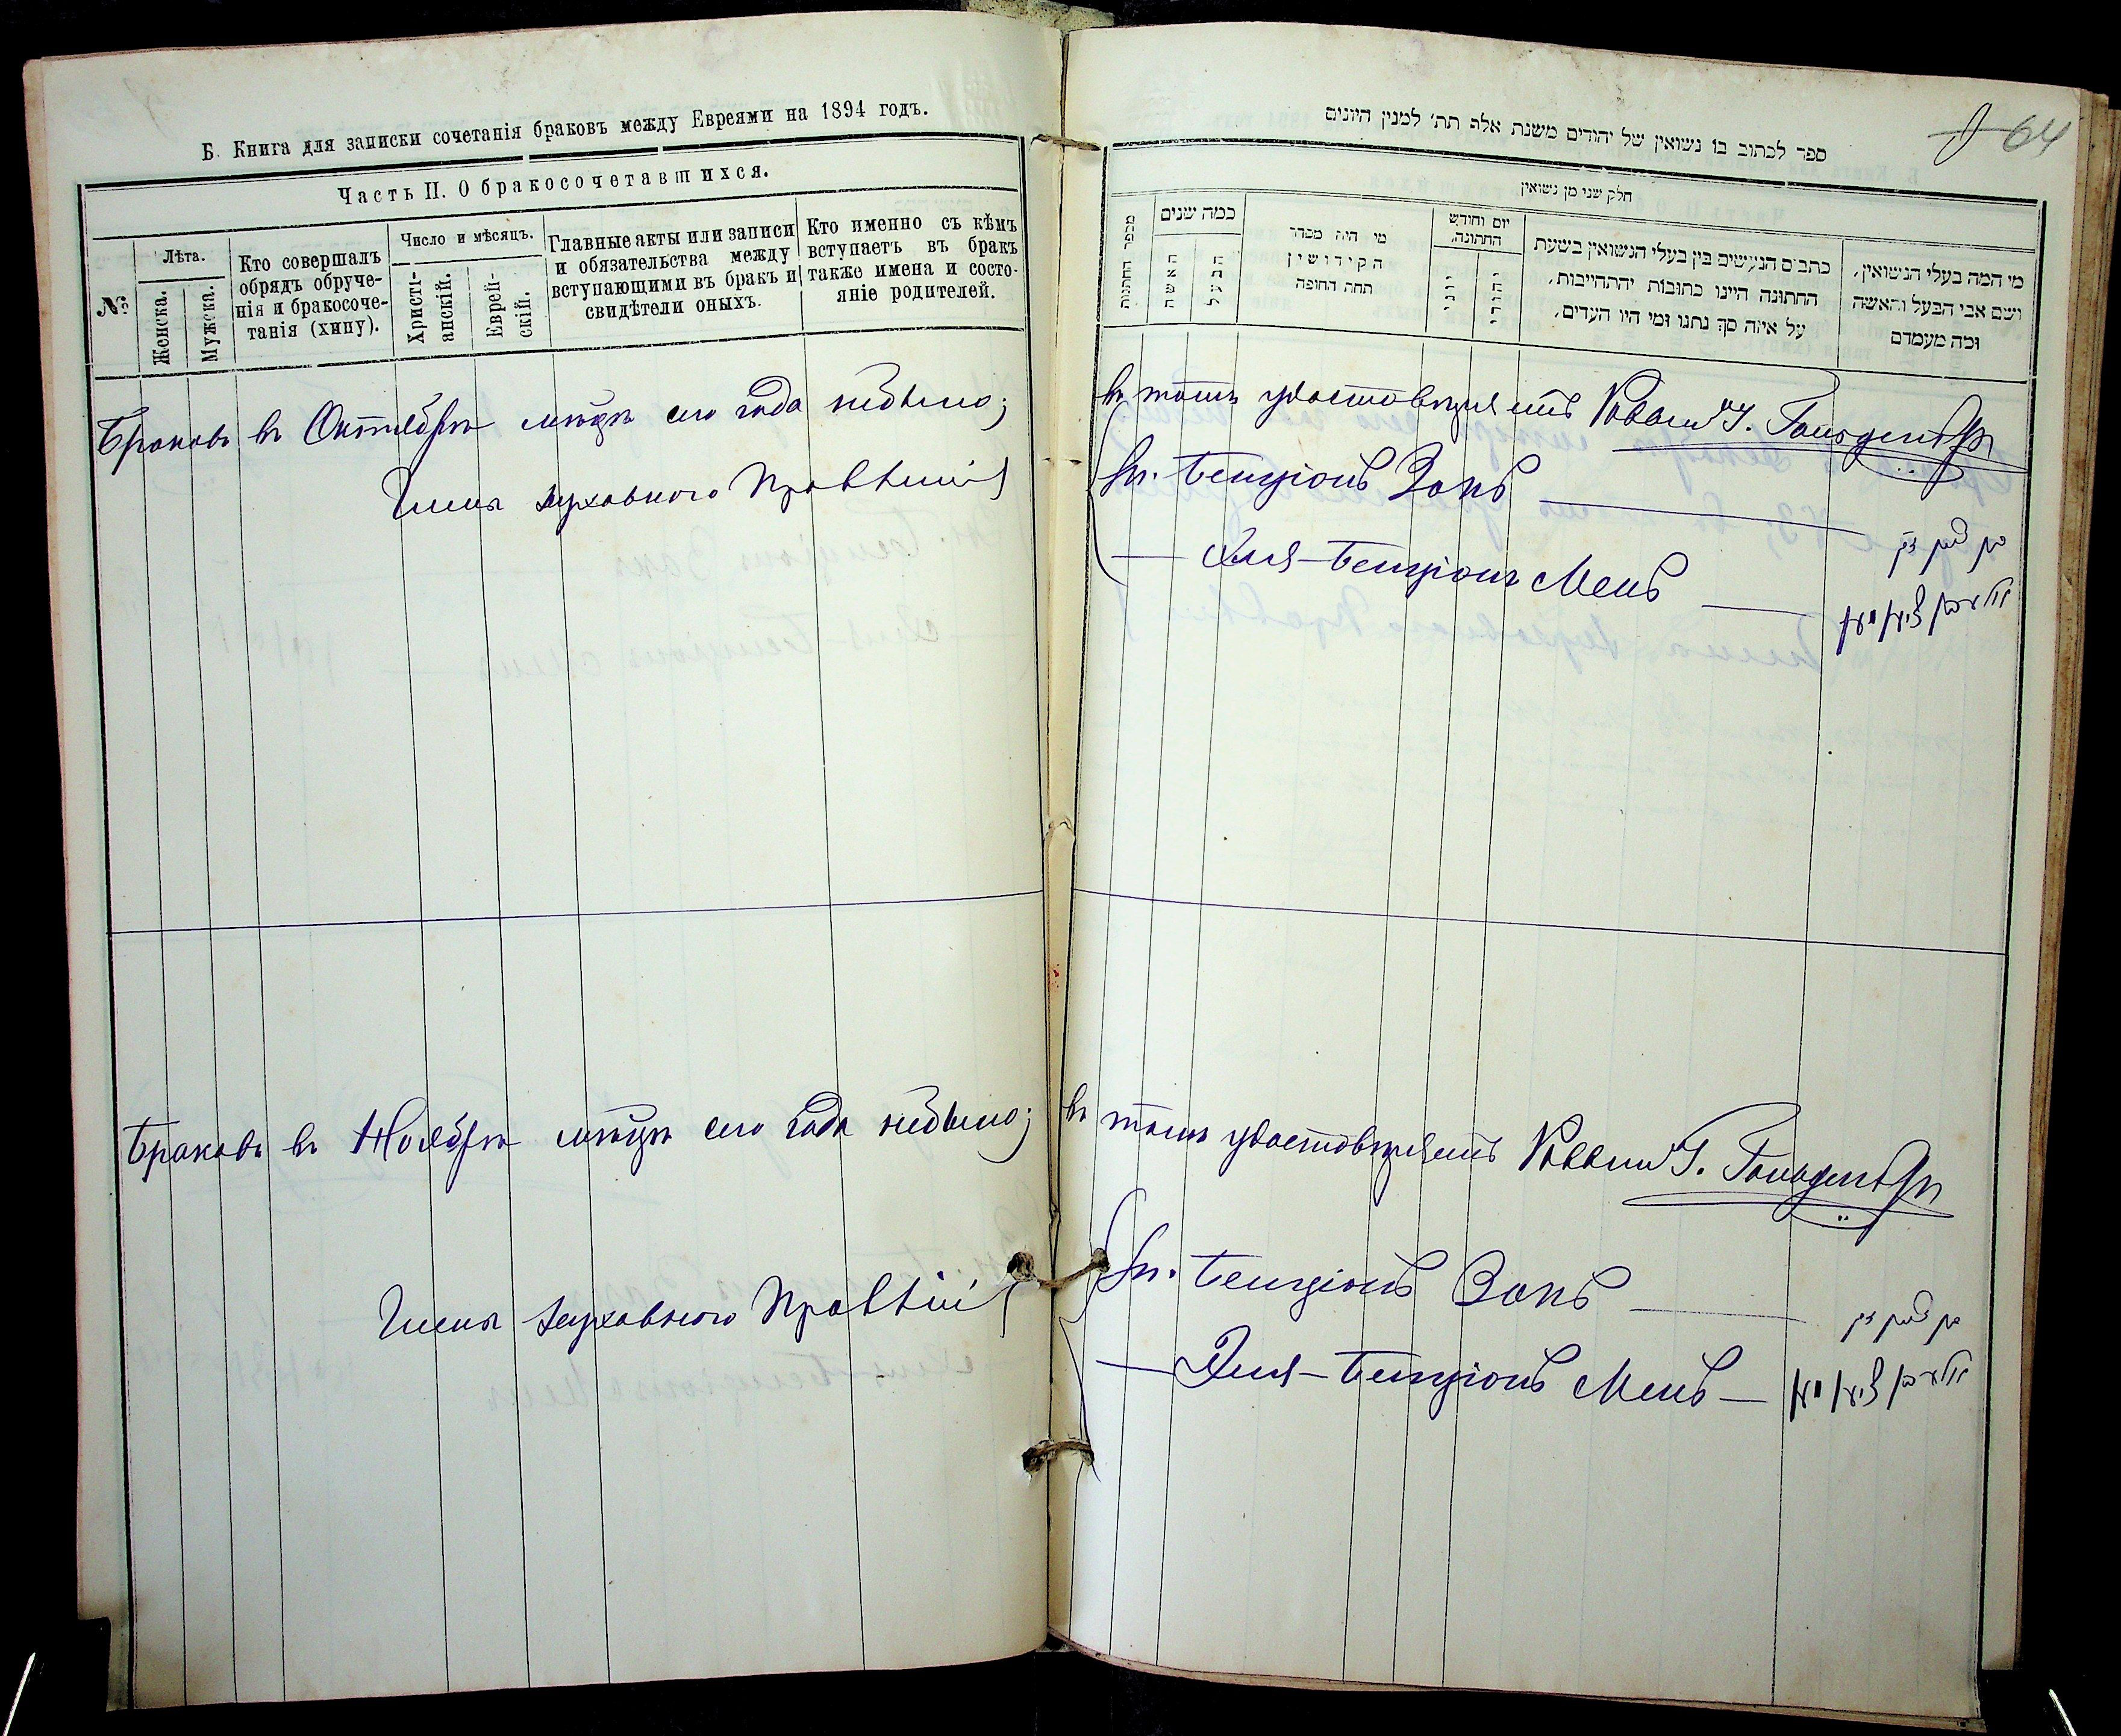 Б. Книга для записки сочетанія браковъ между Евреями на 1894 годъ.
Часть II. О бракосочетавшихся.
№
Лѣта.
Женска.
Мужска.
Кто совершалъ
обрядъ обруче-
нія и бракосоче-
танія (хипу).
Число и мѣсяцъ.
Христі-
анскій.
Еврей-
скій.
Главные акты или записи
и обязательства между
вступающими въ бракъ и
свидѣтели оныхъ.
Кто именно съ кѣмъ
вступаетъ въ бракъ
также имена и состо-
яніе родителей.
Браковъ въ Октябрѣ мѣсяцѣ сего года небыло;
Члены Духовнаго Правленія
Браковъ въ Ноябрѣ мѣсяцѣ сего года небыло;
Члены Духовнаго Правленія
64
ספר לכתוב בו נשואין של יהודים משנת אלף תת׳ למנין היונים
חלק שני מן נשואין
מספר החתונות
כמה שנים
האשה
הבעל
מי היה מסדר
הקידושין
תחת החופה
יום וחודש
החתונה.
יוני
יהודי
כתבים הנעשים בין בעלי הנשואין בשעת
החתונה היינו כתובות והתחייבות,
על איזה סך נתנו ומי היו העדים,
מי המה בעלי הנשואין,
ושם אבי הבעל והאשה
ומה מעמדם
въ томъ удостовѣряетъ Раввинъ
Бенціонъ Закъ
Эля-Бенціонъ Менъ
въ томъ удостовѣряетъ Раввинъ
Бенціонъ Закъ
Эля-Бенціонъ Менъ